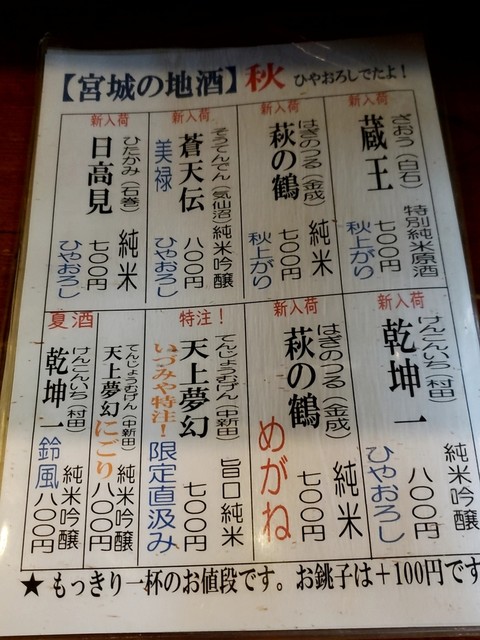 【宮城の地酒】秋 ひやおろしでたよ！
新入荷
ざおう（白石）
蔵王
特別純米原酒
七〇〇円
秋上がり
新入荷
はぎのつる（金成）
萩の鶴
純米
七〇〇円
秋上がり
新入荷
そうてんでん（気仙沼）
蒼天伝
美禄
純米吟醸
八〇〇円
ひやおろし
新入荷
ひたかみ（石巻）
日高見
純米
七〇〇円
ひやおろし
新入荷
けんこんいち（村田）
乾坤一
純米吟醸
八〇〇円
ひやおろし
新入荷
はぎのつる（金成）
萩の鶴
純米
七〇〇円
めがね
特注！
てんじょうむげん（中新田）
天上夢幻
旨口純米
七〇〇円
いづみや特注！
限定直汲み
てんじょうむげん（中新田）
天上夢幻
にごり
純米吟醸
八〇〇円
夏酒
けんこんいち（村田）
乾坤一
鈴風
純米吟醸
八〇〇円
★もっきり一杯のお値段です。お銚子は＋100円です